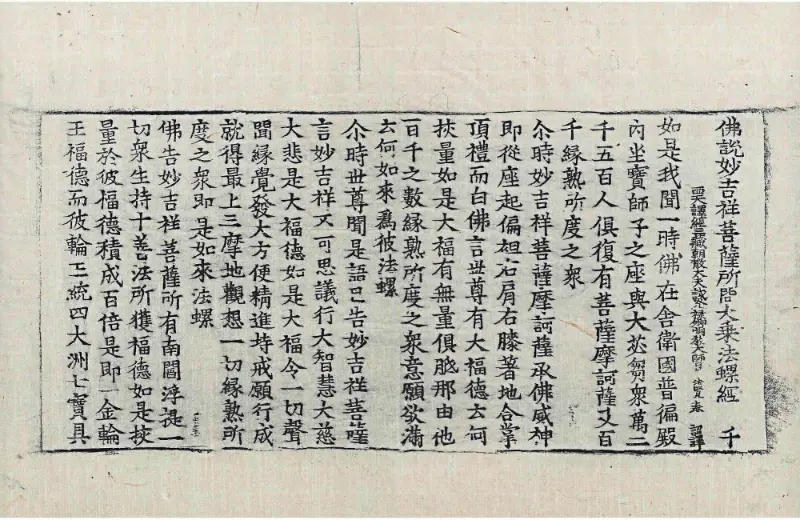 佛說妙吉祥菩薩所問大乗法螺經 千
西天譯經三藏朝散大夫試鴻臚卿明教大師臣法賢奉 詔譯
如是我聞一時佛在舎衛國普徧殿
內坐寶師子之座與大苾芻衆萬二
千五百人俱復有菩薩摩訶薩又百
千緣熟所度之衆
尒時妙吉祥菩薩摩訶薩承佛威神
即從座起偏袒右肩右膝著地合掌
頂禮而白佛言世尊有大福德云何
挍量如是大福有無量俱胝那由他
百千之數緣熟所度之衆意願欲滿
云何如來爲彼法螺
尒時世尊聞是語已告妙吉祥菩薩
言妙吉祥不可思議行大智慧大慈
大悲是大福德如是大福令一切聲
聞緣覺發大方便精進持戒願行成
就得最上三摩地觀想一切緣熟所
度之衆即是如來法螺
佛告妙吉祥菩薩所有南閻浮提一
切衆生持十善法所獲福德如是挍
量於彼福德積成百倍是即一金輪
王福德而彼輪王統四大洲七寶具